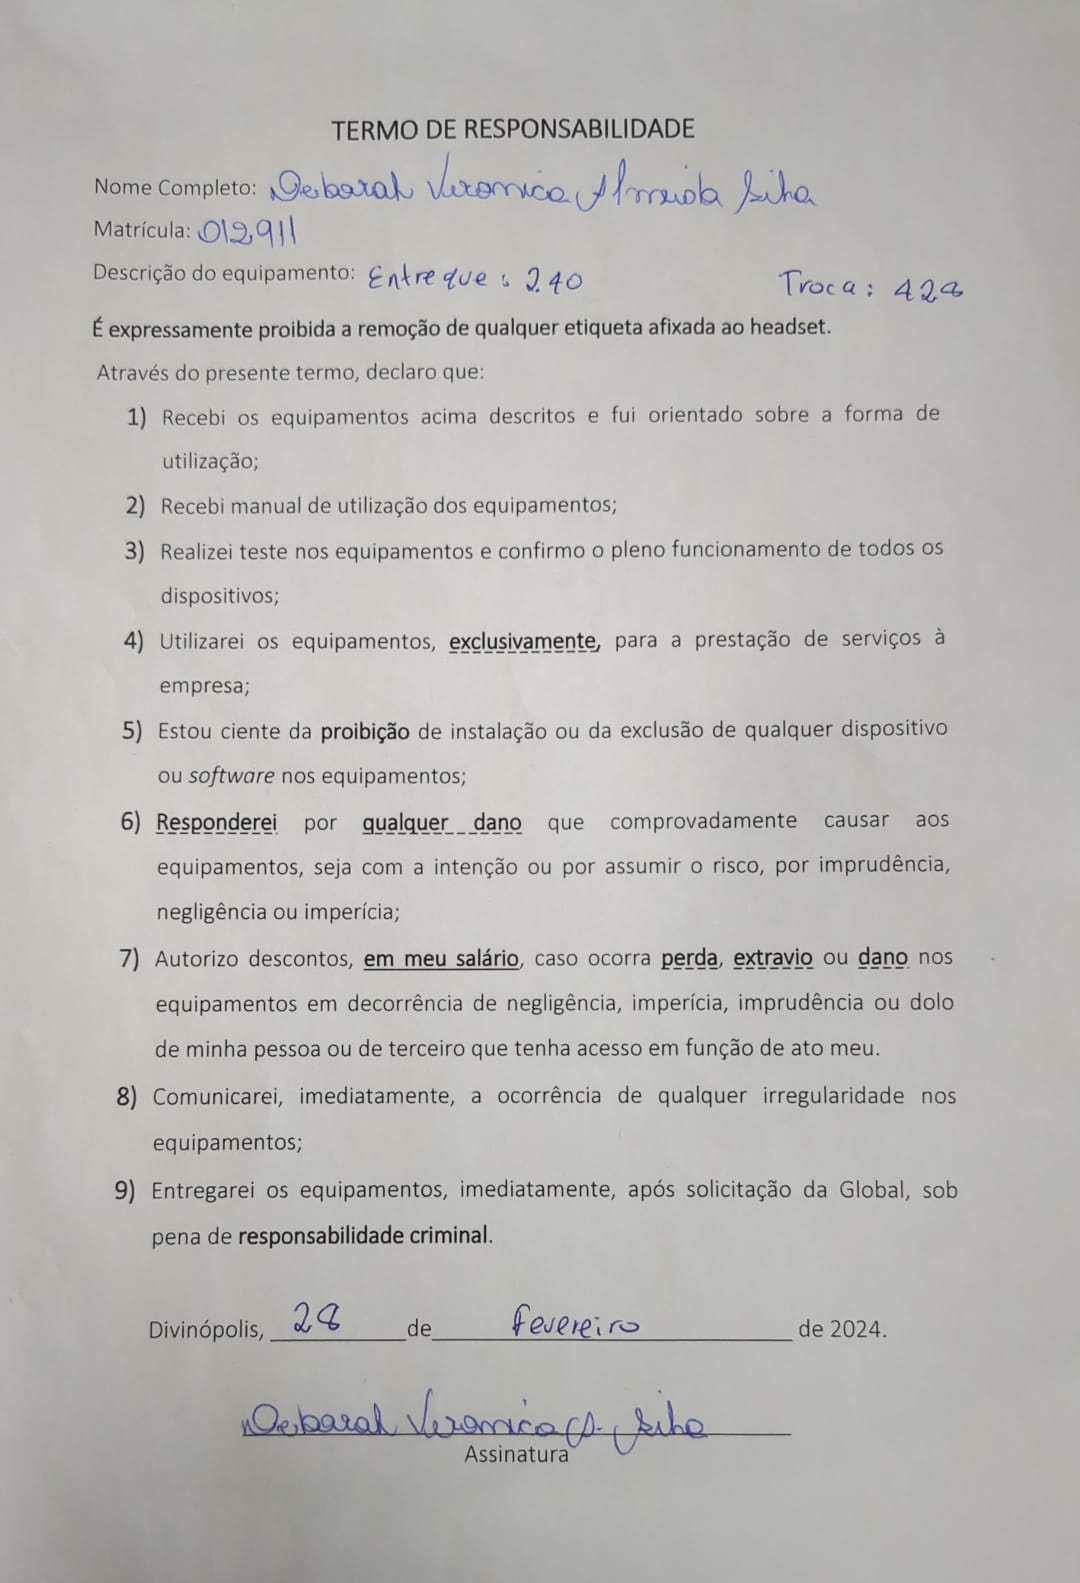 TERMO DE RESPONSABILIDADE
Nome Completo: Deborah Veronica Almeida Silva
Matrícula: 012911
Descrição do equipamento: Entregue: 240 Troca: 428
É expressamente proibida a remoção de qualquer etiqueta afixada ao headset.
Através do presente termo, declaro que:
1) Recebi os equipamentos acima descritos e fui orientado sobre a forma de
utilização;
2) Recebi manual de utilização dos equipamentos;
3) Realizei teste nos equipamentos e confirmo o pleno funcionamento de todos os
dispositivos;
4) Utilizarei os equipamentos, exclusivamente, para a prestação de serviços à
empresa;
5) Estou ciente da proibição de instalação ou da exclusão de qualquer dispositivo
ou software nos equipamentos;
6) Responderei por qualquer dano que comprovadamente causar aos
equipamentos, seja com a intenção ou por assumir o risco, por imprudência,
negligência ou imperícia;
7) Autorizo descontos, em meu salário, caso ocorra perda, extravio ou dano nos
equipamentos em decorrência de negligência, imperícia, imprudência ou dolo
de minha pessoa ou de terceiro que tenha acesso em função de ato meu.
8) Comunicarei, imediatamente, a ocorrência de qualquer irregularidade nos
equipamentos;
9) Entregarei os equipamentos, imediatamente, após solicitação da Global, sob
pena de responsabilidade criminal.
Divinópolis, 28 de Fevereiro de 2024.
Deborah Veronica A. Silva
Assinatura